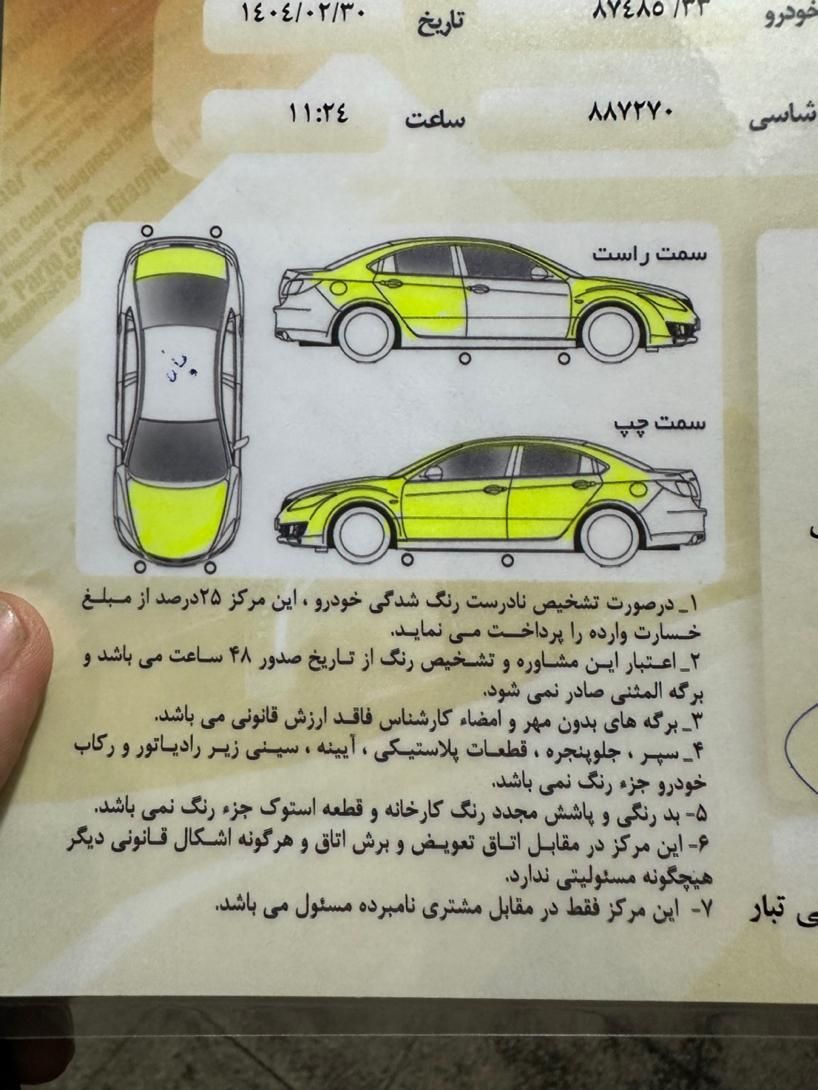 خودرو ۸۷٤۸٥/۳۳ تاریخ ۱٤۰٤/۰۲/۳۰
شاسی ۸۸۷۲۷۰ ساعت ۱۱:۲٤
سمت راست
سمت چپ
۱_ درصورت تشخیص نادرست رنگ شدگی خودرو ، این مرکز ۲۵درصد از مبلغ
خسارت وارده را پرداخت می نماید.
۲_ اعتبار این مشاوره و تشخیص رنگ از تاریخ صدور ۴۸ ساعت می باشد و
برگه المثنی صادر نمی شود.
۳_ برگه های بدون مهر و امضاء کارشناس فاقد ارزش قانونی می باشد.
۴_ سپر ، جلوپنجره ، قطعات پلاستیکی ، آیینه ، سینی زیر رادیاتور و رکاب
خودرو جزء رنگ نمی باشد.
۵- بد رنگی و پاشش مجدد رنگ کارخانه و قطعه استوک جزء رنگ نمی باشد.
۶- این مرکز در مقابل اتاق تعویض و برش اتاق و هرگونه اشکال قانونی دیگر
هیچگونه مسئولیتی ندارد.
۷- این مرکز فقط در مقابل مشتری نامبرده مسئول می باشد.
تبار